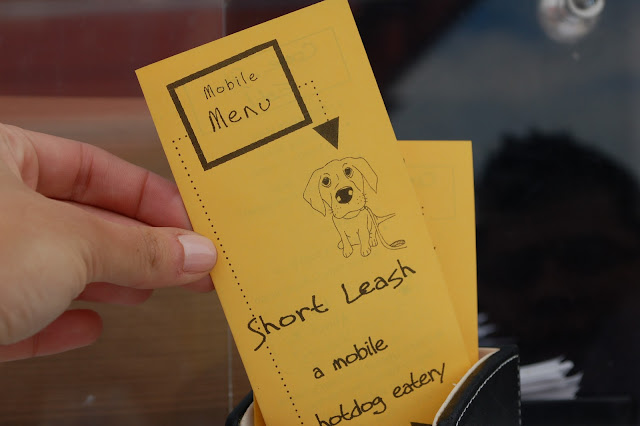 Mobile
Menu
Short Leash
a mobile
hotdog eatery